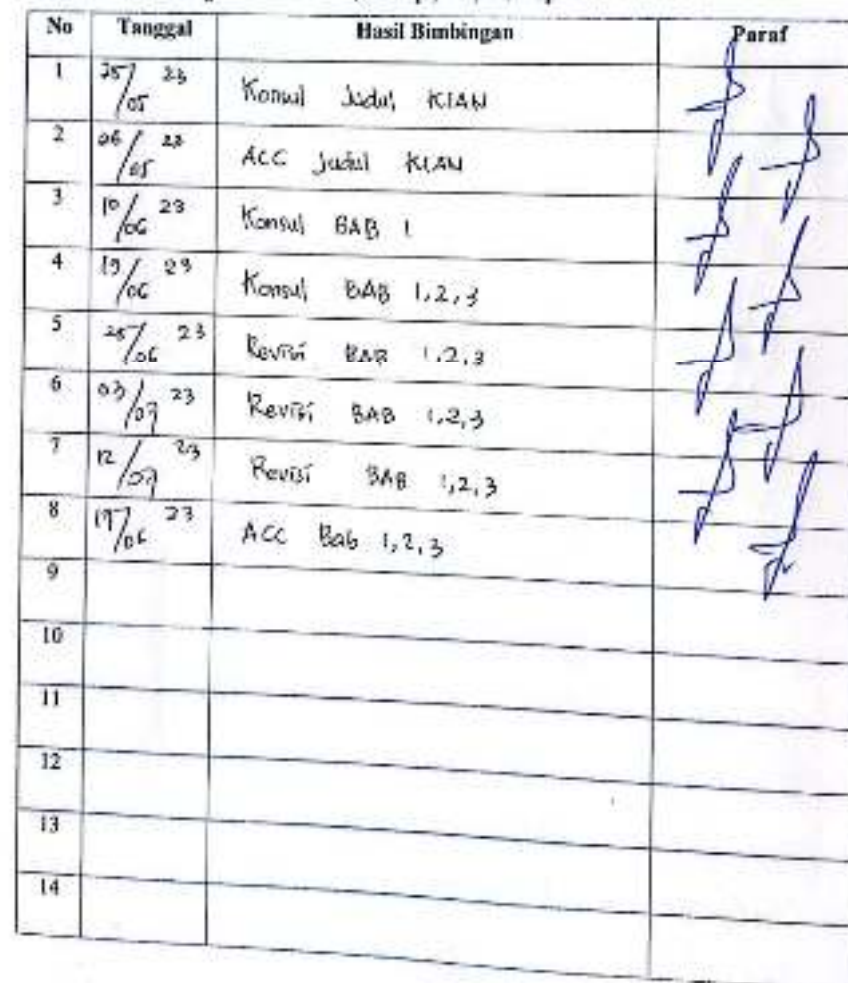 No Tanggal Hasil Bimbingan Paraf
1 25/05 23 Konsul Judul KIAN
2 06/05 23 ACC Judul KIAN
3 10/06 23 Konsul BAB 1
4 19/06 23 Konsul BAB 1,2,3
5 25/06 23 Revisi BAB 1,2,3
6 03/07 23 Revisi BAB 1,2,3
7 12/07 23 Revisi BAB 1,2,3
8 17/06 23 ACC Bab 1,2,3
9
10
11
12
13
14